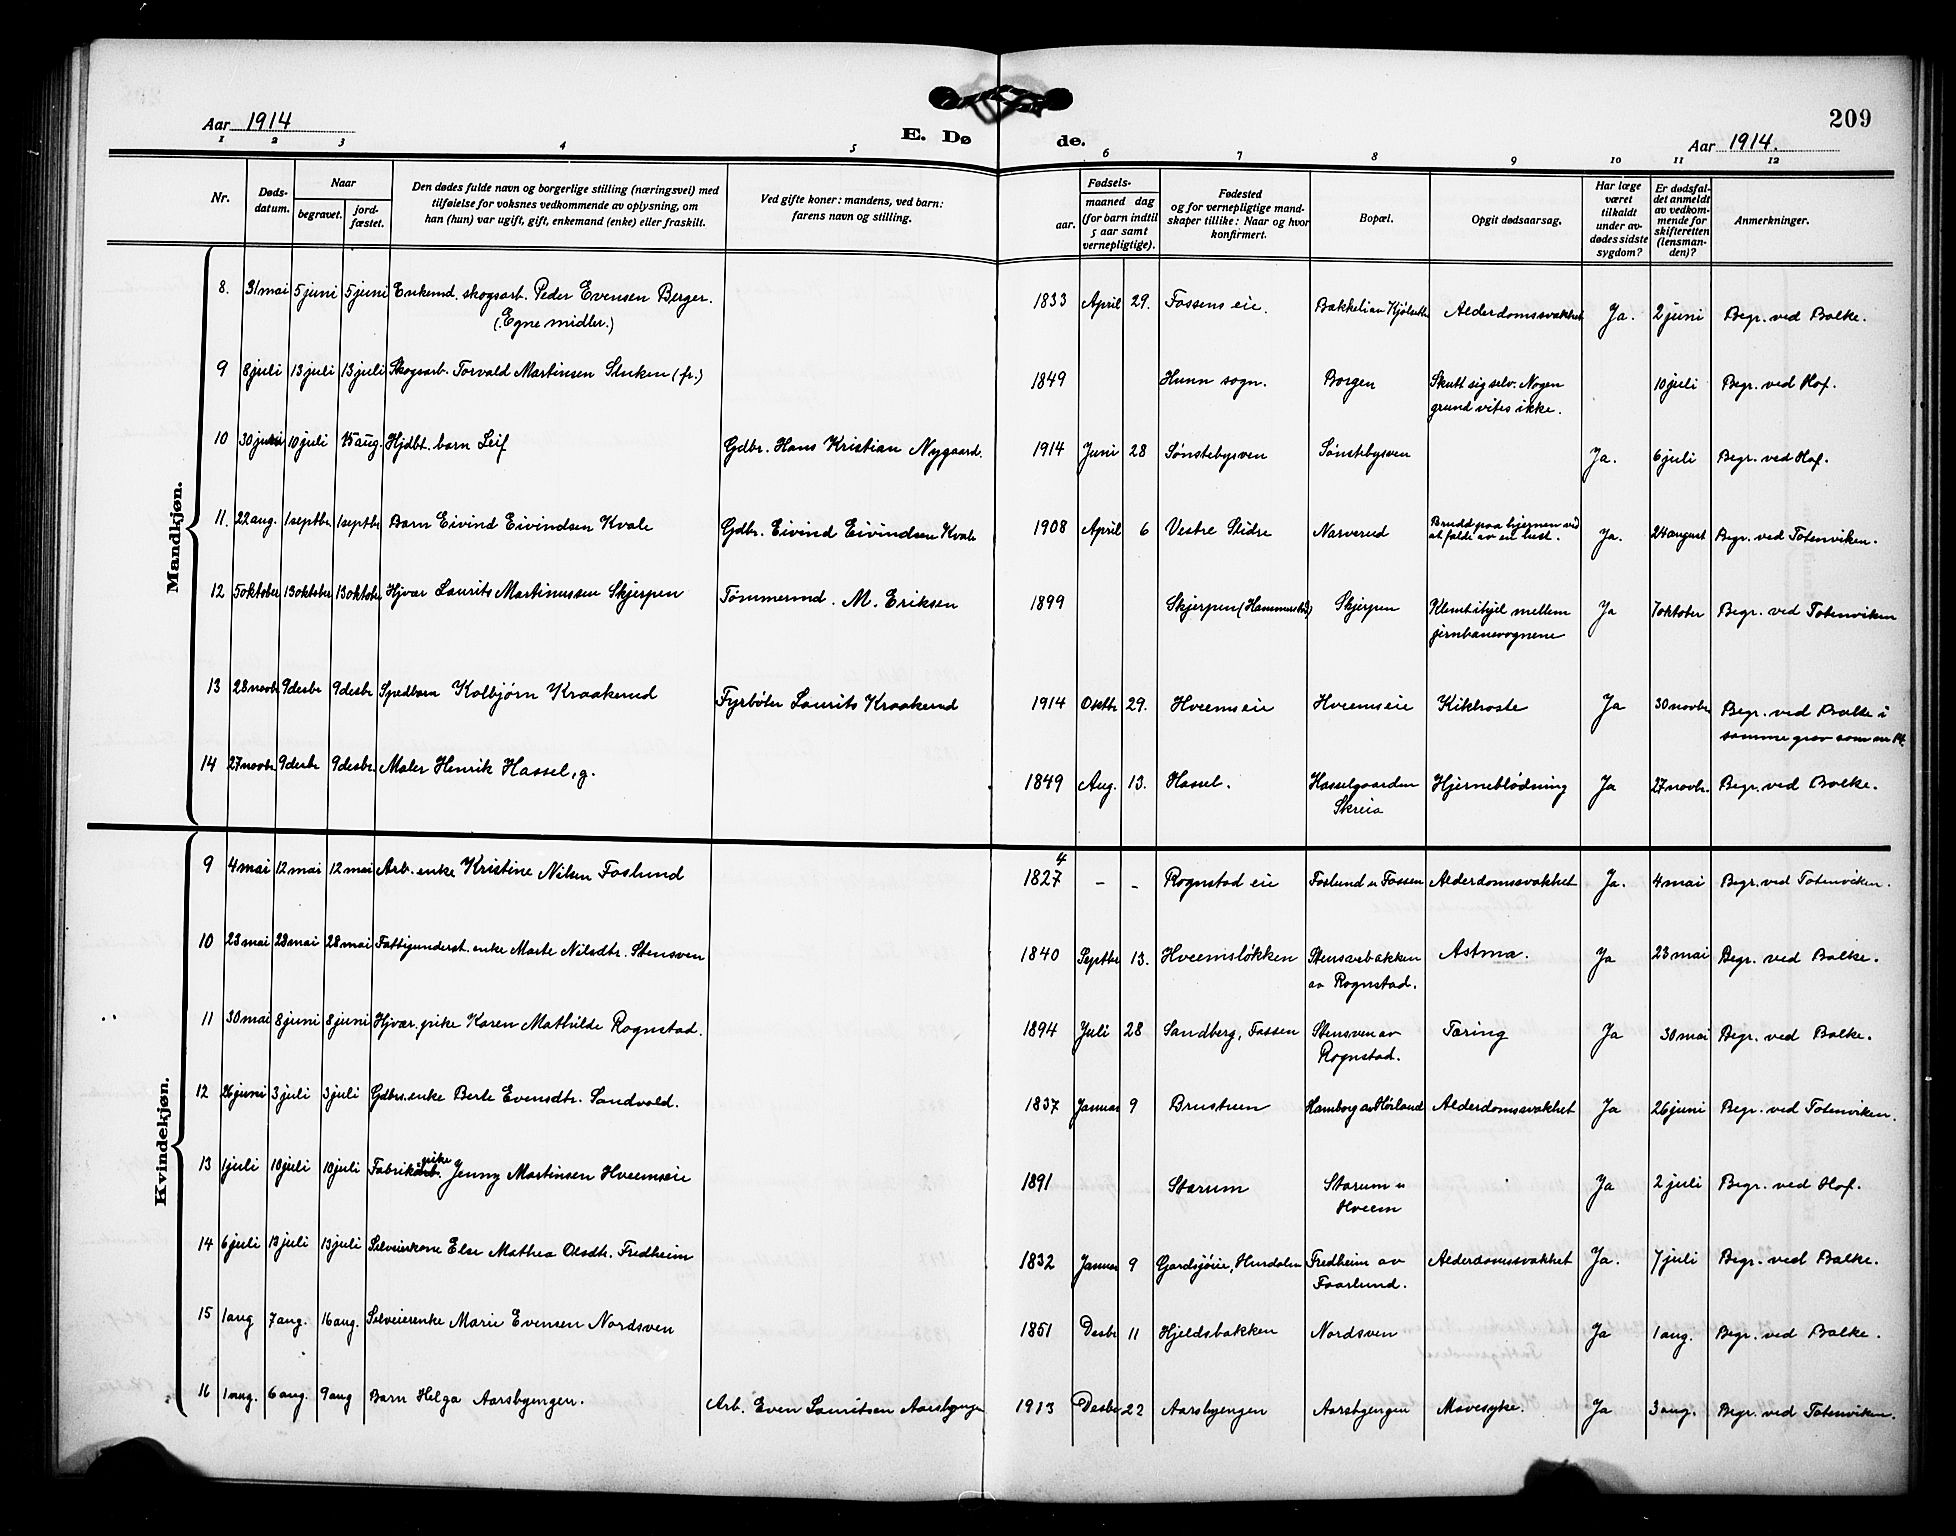 209
Aar 1914
E. Dø
de.
Aar 1914.
1 2 3 4 5 6 7 8 9 10 11 12
Nr.
Døds-
datum.
Naar
begravet.
jord-
fæstet.
Den dødes fulde navn og borgerlige stilling (næringsvei) med
tilføielse for voksnes vedkommende av oplysning, om
han (hun) var ugift, gift, enkemand (enke) eller fraskilt.
Ved gifte koner: mandens, ved barn:
farens navn og stilling.
Fødsels-
aar.
maaned dag
(for barn indtil
5 aar samt
vernepligtige).
Fødested
og for vernepligtige mand-
skaper tillike: Naar og hvor
konfirmert.
Bopæl.
Opgit dødsaarsag.
Har læge
været
tilkaldt
under av-
dødes sidste
sygdom?
Er dødsfal-
det anmeldt
av vedkom-
mende for
skifteretten
(lensman-
den)?
Anmerkninger.
Mandkjøn.
8. 31 mai 5 juni 5 juni Enkemd. skogsarb. Peder Evensen Berger. 1833 April 29. Fossens eie. Bakkelian Kjølseth Alderdomssvakhet Ja. 2 juni Begr. ved Balke.
(Egne midler.)
9 8 juli 13 juli 13 juli Skogsarb. Torvald Martinsen Stuken (fr.) 1849 Hunn sogn. Borgen Skutt sig selv. Nogen 10 juli Begr. ved Hof.
grund vites ikke.
10 30 juni 10 juli 15 aug. Hjdbt. barn Leif Gdbr. Hans Kristian Nygaard. 1914 Juni 28 Sønstebysven Sønstebysven Ja. 6 juli Begr. ved Hof.
11. 22 aug. 1 septbr 1 septbr Barn Eivind Eivindsen Kvale Gdbr. Eivind Eivindsen Kvale 1908 April 6 Vestre Slidre Narverud Brudd paa hjernen ved Ja. 24 august Begr. ved Totenviken.
at falde av en hest.
12 5 oktober 13 oktober 13 oktober Hjvær Laurits Martinussen Skjerpen Tømmermd. M. Eriksen 1899 Skjerpen (Hammerstad) Skjerpen Klemt ihjel mellem Ja 7 oktober Begr. ved Totenviken
jernbanevognene
13 28 novbr 9 desbr 9 desbr Spedbarn Kolbjørn Kraakerud Fyrbøter Laurits Kraakerud 1914 Oktbr 29. Hveemseie Hveemseie Kikhoste Ja 30 novbr Begr. ved Balke i
samme grav som nr 14.
14 27 novbr. 9 desbr 9 desbr. Maler Henrik Hassel, g. 1849 Aug. 13. Hassel. Hasselgaarden Hjerneblødning Ja 27 novbr. Begr. ved Balke.
Skreia
Kvindekjøn.
9 4 mai 12 mai 12 mai Arb. enke Kristine Nilsen Foslund 1827 4 - - Rognstad eie Foslund u Fossen Alderdomssvakhet Ja. 4 mai Begr. ved Totenviken.
10 23 mai 28 mai 28 mai Fattigunderst. enke Marte Nilsdtr. Stensven 1840 Septbr 13. Hveemsløkken Stensvebakken Astma. Ja 23 mai Begr. ved Balke.
av Rognstad.
11 30 mai 8 juni 8 juni Hjvær. pike Karen Mathilde Rognstad. 1894 Juli 28 Sandberg, Fossen Stensven av Tæring Ja 30 mai Begr. ved Balke.
Rognstad.
12 26 juni 3 juli 3 juli Gdbrs. enke Berte Evensdtr. Sandvold. 1837 Januar 9 Brustuen Hamborg av Hørland Alderdomssvakhet Ja 26 juni Begr. ved Totenviken.
13 1 juli 10 juli 10 juli Fabrikarb. pike Jenny Martinsen Hveemseie 1891 Starum Starum u Ja 2 juli Begr. ved Hof.
Hveem
14 6 juli 13 juli 13 juli Selveierkone Else Mathea Olsdtr. Fredheim 1832 Januar 9 Gardsjøeie, Hurdalen Fredheim av Alderdomssvakhet Ja. 7 juli Begr. ved Balke.
Faarlund.
15 1 aug 7 aug. 16 aug. Selveierenke Marie Evensen Nordsven 1851 Desbr 11 Hjeldsbakken Nordsven Ja 1 aug. Begr. ved Balke.
16 1 aug. 6 aug. 9 aug Barn Helga Aarsbyengen. Arb. Even Lauritsen Aarsbyengen 1913 Desbr 22 Aarsbyengen Aarsbyengen Mavesyke. Ja 3 aug. Begr. ved Totenviken.